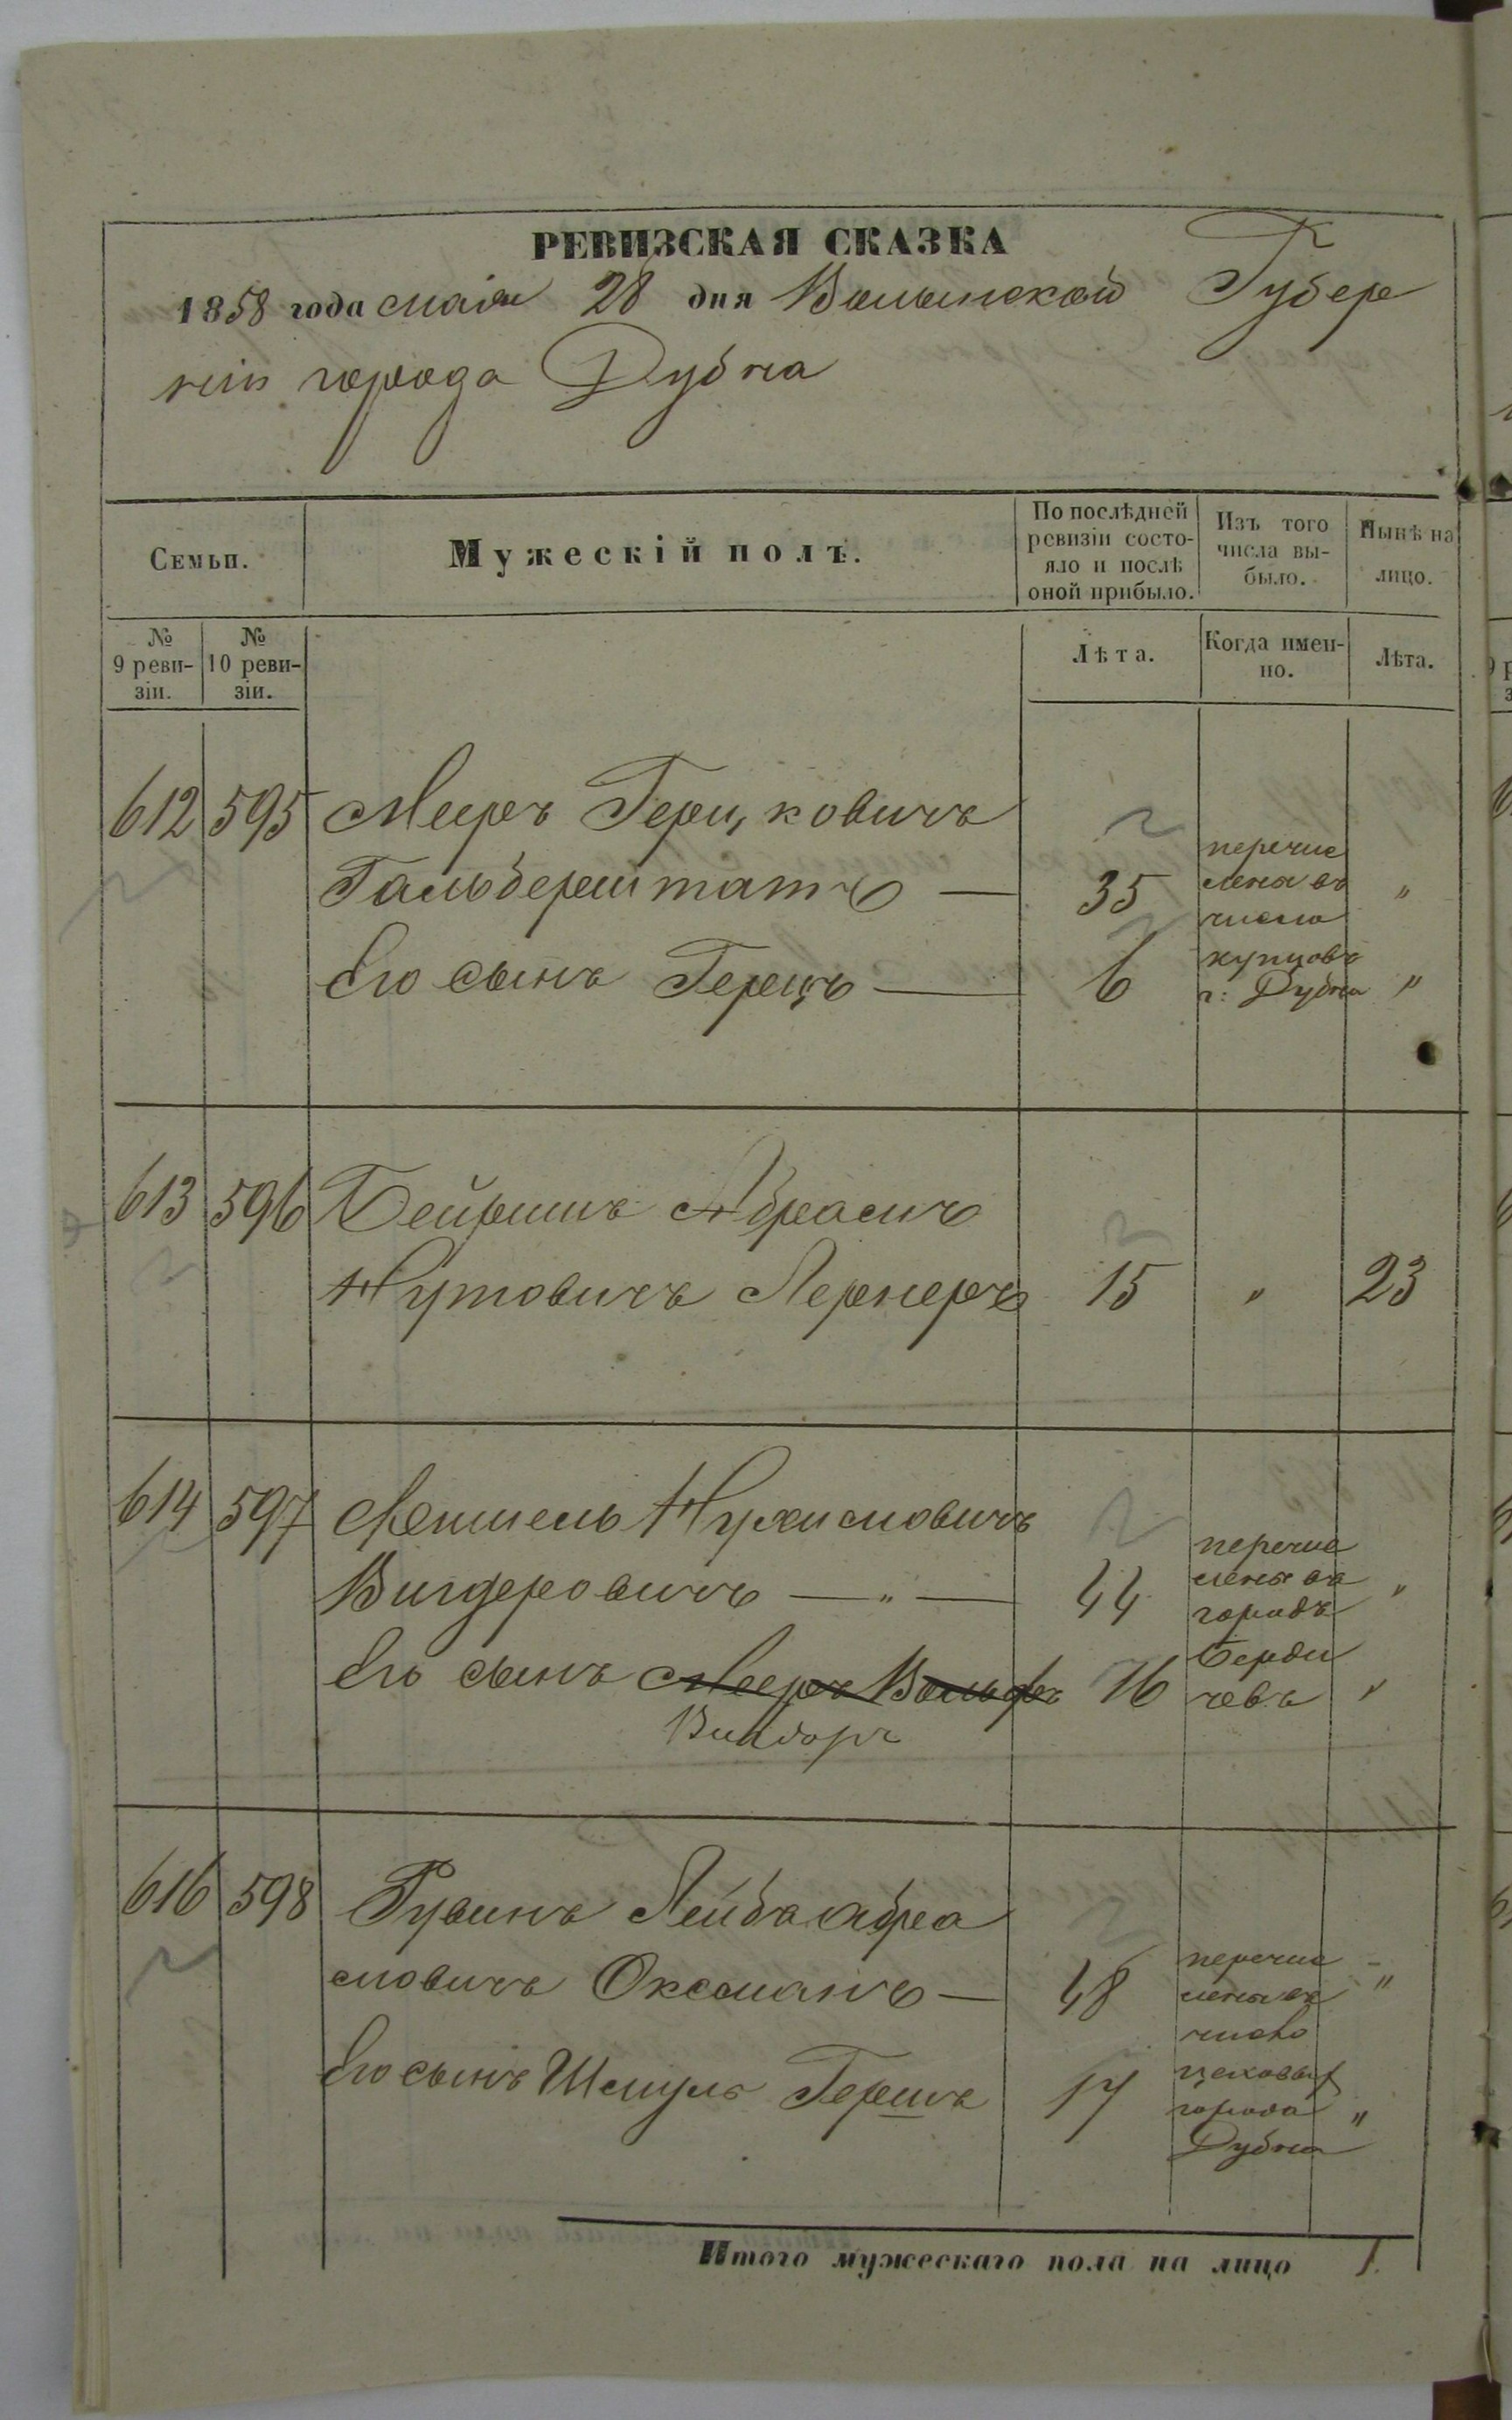 РЕВИЗСКАЯ СКАЗКА
1858 года мая 28 дня Волынской Губер
нiи города Дубна
Семьи.
Мужескій полъ.
По послѣдней ревизіи состо-
яло и послѣ
оной прибыло.
Изъ того
числа вы-
было.
Нынѣ на
лицо.
№
9 реви-
зіи.
№
10 реви-
зіи.
Лѣта.
Когда имен-
но.
Лѣта.
612 595 Мееръ Герц, ковичъ
Гальберштатъ — 35 перечис
лены въ "
число
Его сынъ Герцъ — 6 купцовъ
г: Дубна "
613 596 Бейришъ Абрамъ
Нутовичъ Лернеръ 15 " 23
614 597 Нухимовичъ
Вигдеровичъ — " — 44 перечис
лены въ "
городъ
Его сынъ Мееръ Вольфъ 16 Берди
чевъ "
Вигдоръ
616 598 Рувинъ Лейба Абра
мовичъ Оксманъ — 48 перечис
лены въ "
число
Его сынъ Шмуль Гершъ 17 цеховых
города "
Дубна
Итого мужескаго пола на лицо 1.